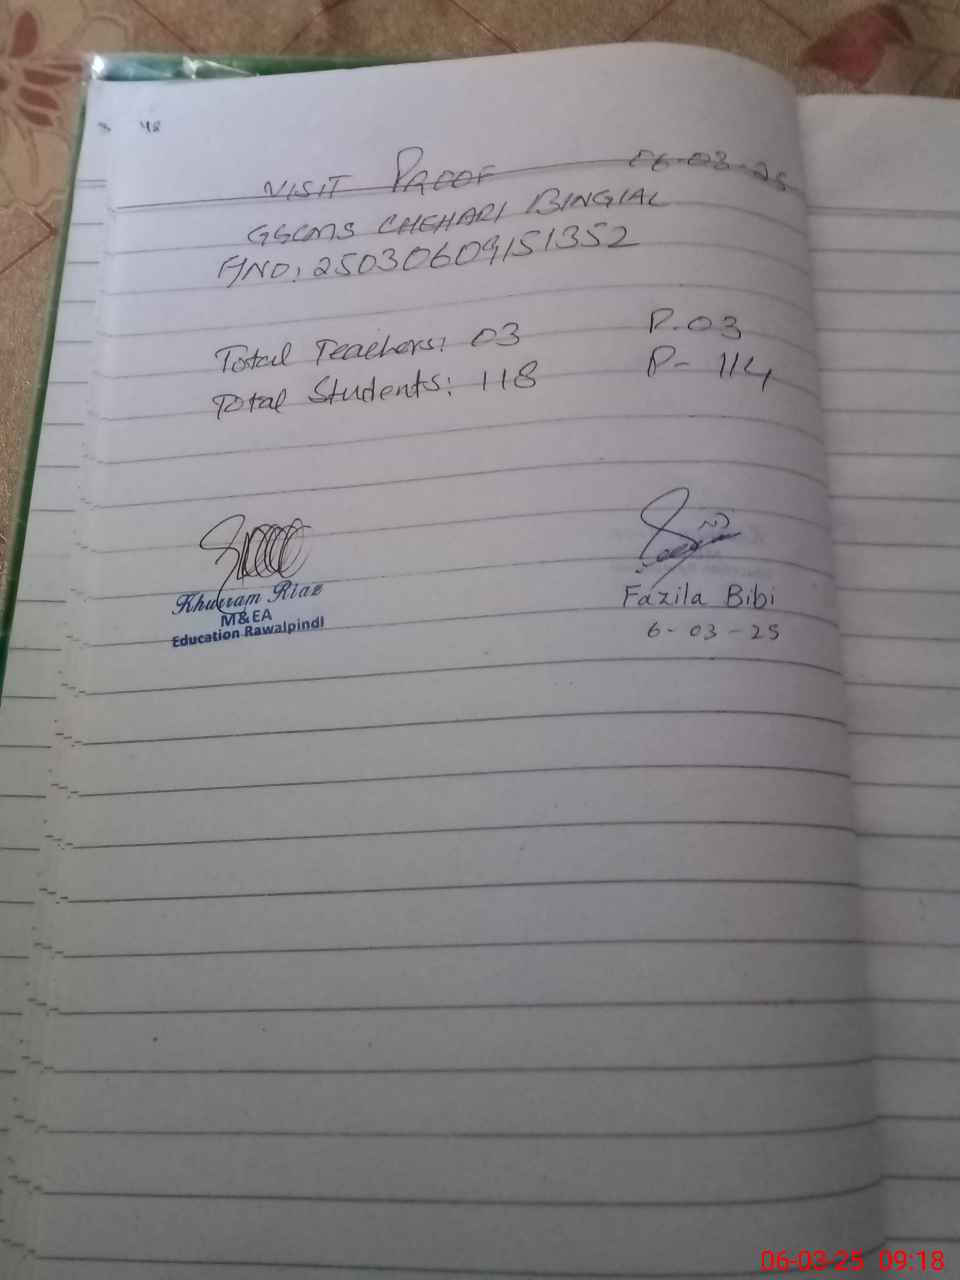 48
VISIT PROOF 06-03-25
GSCMS CHEHARI BINGIAL
A/NO: 25030609151352
Total Teachers: 03 P.03
Total Students: 118 P- 114
Khurram Riaz
M&EA
Education Rawalpindi
Fazila Bibi
6-03-25
06-03-25 09:18